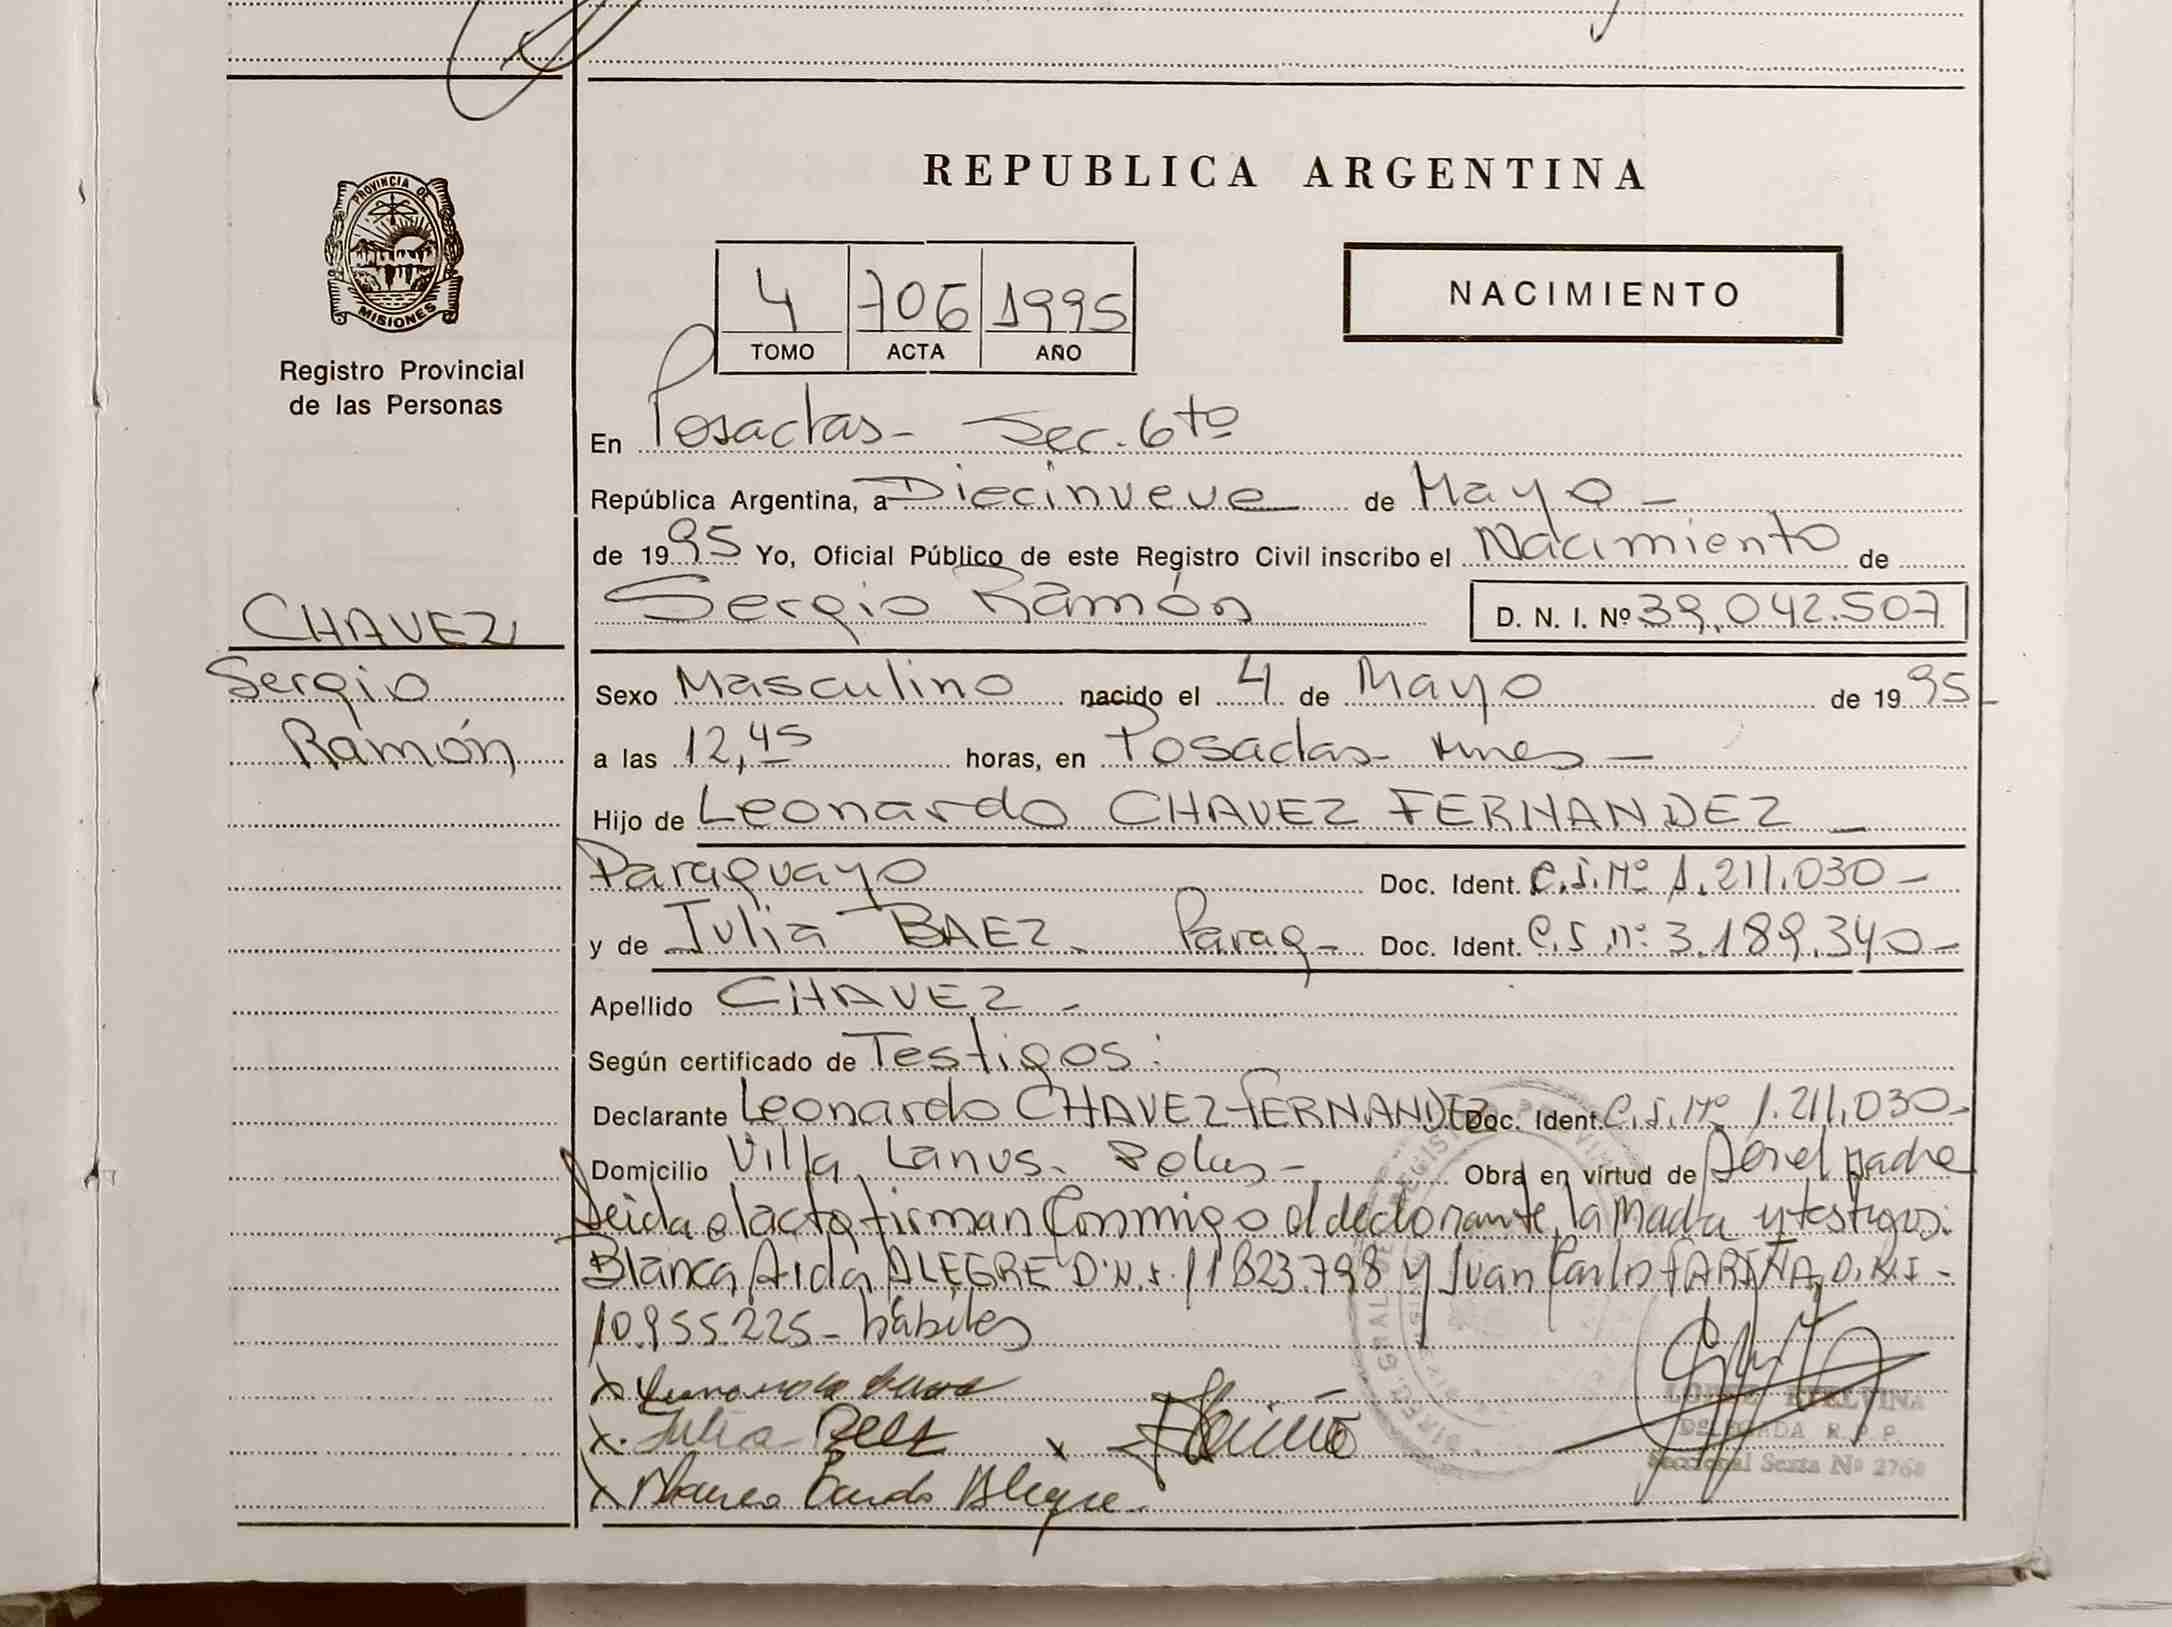 REPUBLICA ARGENTINA
PROVINCIA DE
MISIONES
Registro Provincial
de las Personas
4 706 1995
TOMO ACTA AÑO
NACIMIENTO
En Posadas - Sec. 6to
República Argentina, a Diecinueve de Mayo -
de 1995 Yo, Oficial Público de este Registro Civil inscribo el Nacimiento de
CHAVEZ
Sergio
Ramón
Sergio Ramón D. N. I. Nº 39.042.507
Sexo Masculino nacido el 4 de Mayo de 1995
a las 12,45 horas, en Posadas - Mnes -
Hijo de Leonardo CHAVEZ FERNANDEZ -
Paraguayo Doc. Ident. C.I.Nº 1.211.030 -
y de Julia BAEZ - Parag - Doc. Ident. C.I.nº 3.189.340 -
Apellido CHAVEZ -
Según certificado de Testigos:
Declarante Leonardo CHAVEZ FERNANDEZ Doc. Ident. C.I.Nº 1.211.030 -
Domicilio Villa Lanus - Pdas - Obra en virtud de Ser el padre
Leida el acta firman Conmigo el declarante, la Madre y testigos:
Blanca Aida ALEGRE D.N.I. 11823.798 y Juan Carlos FARIÑA, D.N.I -
10.955.225 - hábiles
Julia
DELEGADA R.P.P.
Seccional Sexta Nº 2768